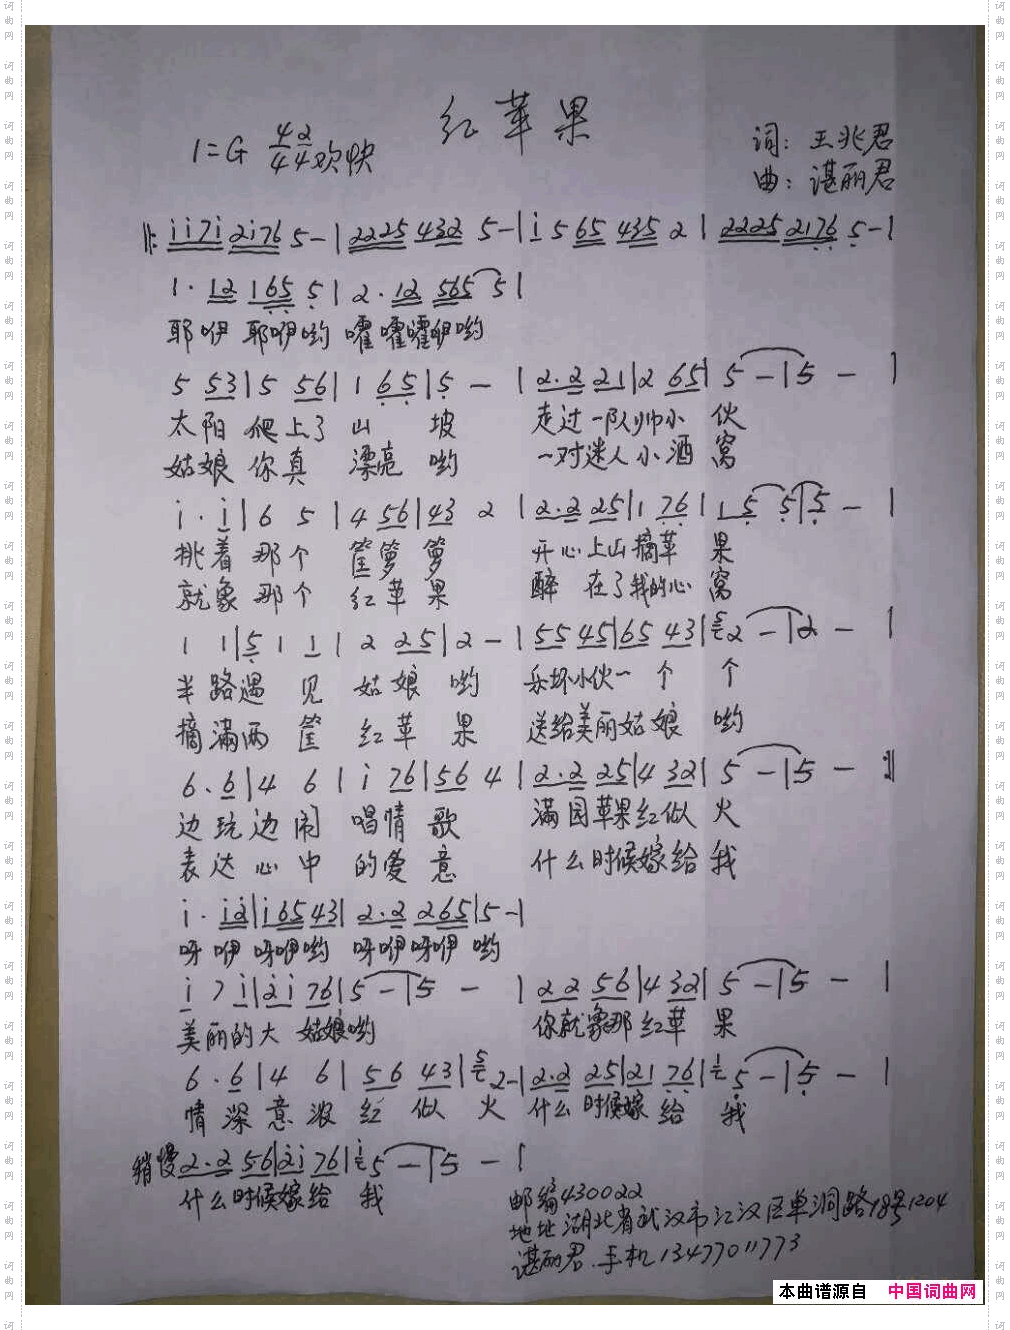 红苹果
1=G 4/4 2/4 欢快
词：王兆君
曲：谌丽君
‖: i i 7 i 2 i 7 6 5 - | 2 2 2 5 4 3 2 5 - | i 5 6 5 4 3 5 2 | 2 2 2 5 2 1 7 6 5 - |
1 · 1 2 1 6 5 5 | 2 · 1 2 5 6 5 5 |
耶咿 耶咿哟 嚯嚯嚯咿哟
5 5 3 | 5 5 6 | 1 6 5 | 5 - | 2 · 2 2 1 | 2 6 5 | 5 - | 5 - |
太阳 爬上了 山 坡 走过一队帅小 伙
姑娘 你真 漂亮 哟 一对迷人小酒 窝
i · i | 6 5 | 4 5 6 | 4 3 2 | 2 · 2 2 5 | 1 7 6 | 1 5 5 | 5 - |
挑着 那个 筐箩箩 开心上山摘苹 果
就象 那个 红苹果 醉在了我的心 窝
1 1 | 5 1 1 | 2 2 5 | 2 - | 5 5 4 5 | 6 5 4 3 | 5 2 - | 2 - |
半路遇 见 姑娘 哟 乐坏小伙一个 个
摘满两 筐 红苹 果 送给美丽姑娘 哟
6 · 6 | 4 6 | i 7 6 | 5 6 4 | 2 · 2 2 5 | 4 3 2 | 5 - | 5 - :‖
边玩边闹 唱情歌 满园苹果红似 火
表达心中 的爱意 什么时候嫁给 我
i · i 2 | i 6 5 4 3 | 2 · 2 2 6 5 | 5 - |
呀咿 呀咿哟 呀咿呀咿 哟
i 7 i | 2 i 7 6 | 5 - | 5 - | 2 2 5 6 | 4 3 2 | 5 - | 5 - |
美丽的大 姑娘哟 你就象那红苹 果
6 · 6 | 4 6 | 5 6 4 3 | 5 2 - | 2 · 2 2 5 | 2 1 7 6 | 1 5 - | 5 - |
情深意浓 红 似 火 什么时候嫁 给 我
稍慢 2 · 2 5 6 | 2 i 7 6 | i 5 - | 5 - |
什么时候嫁给 我
邮编430022
地址 湖北省武汉市江汉区单洞路18号1204
谌丽君.手机13477011773
本曲谱源自 中国词曲网